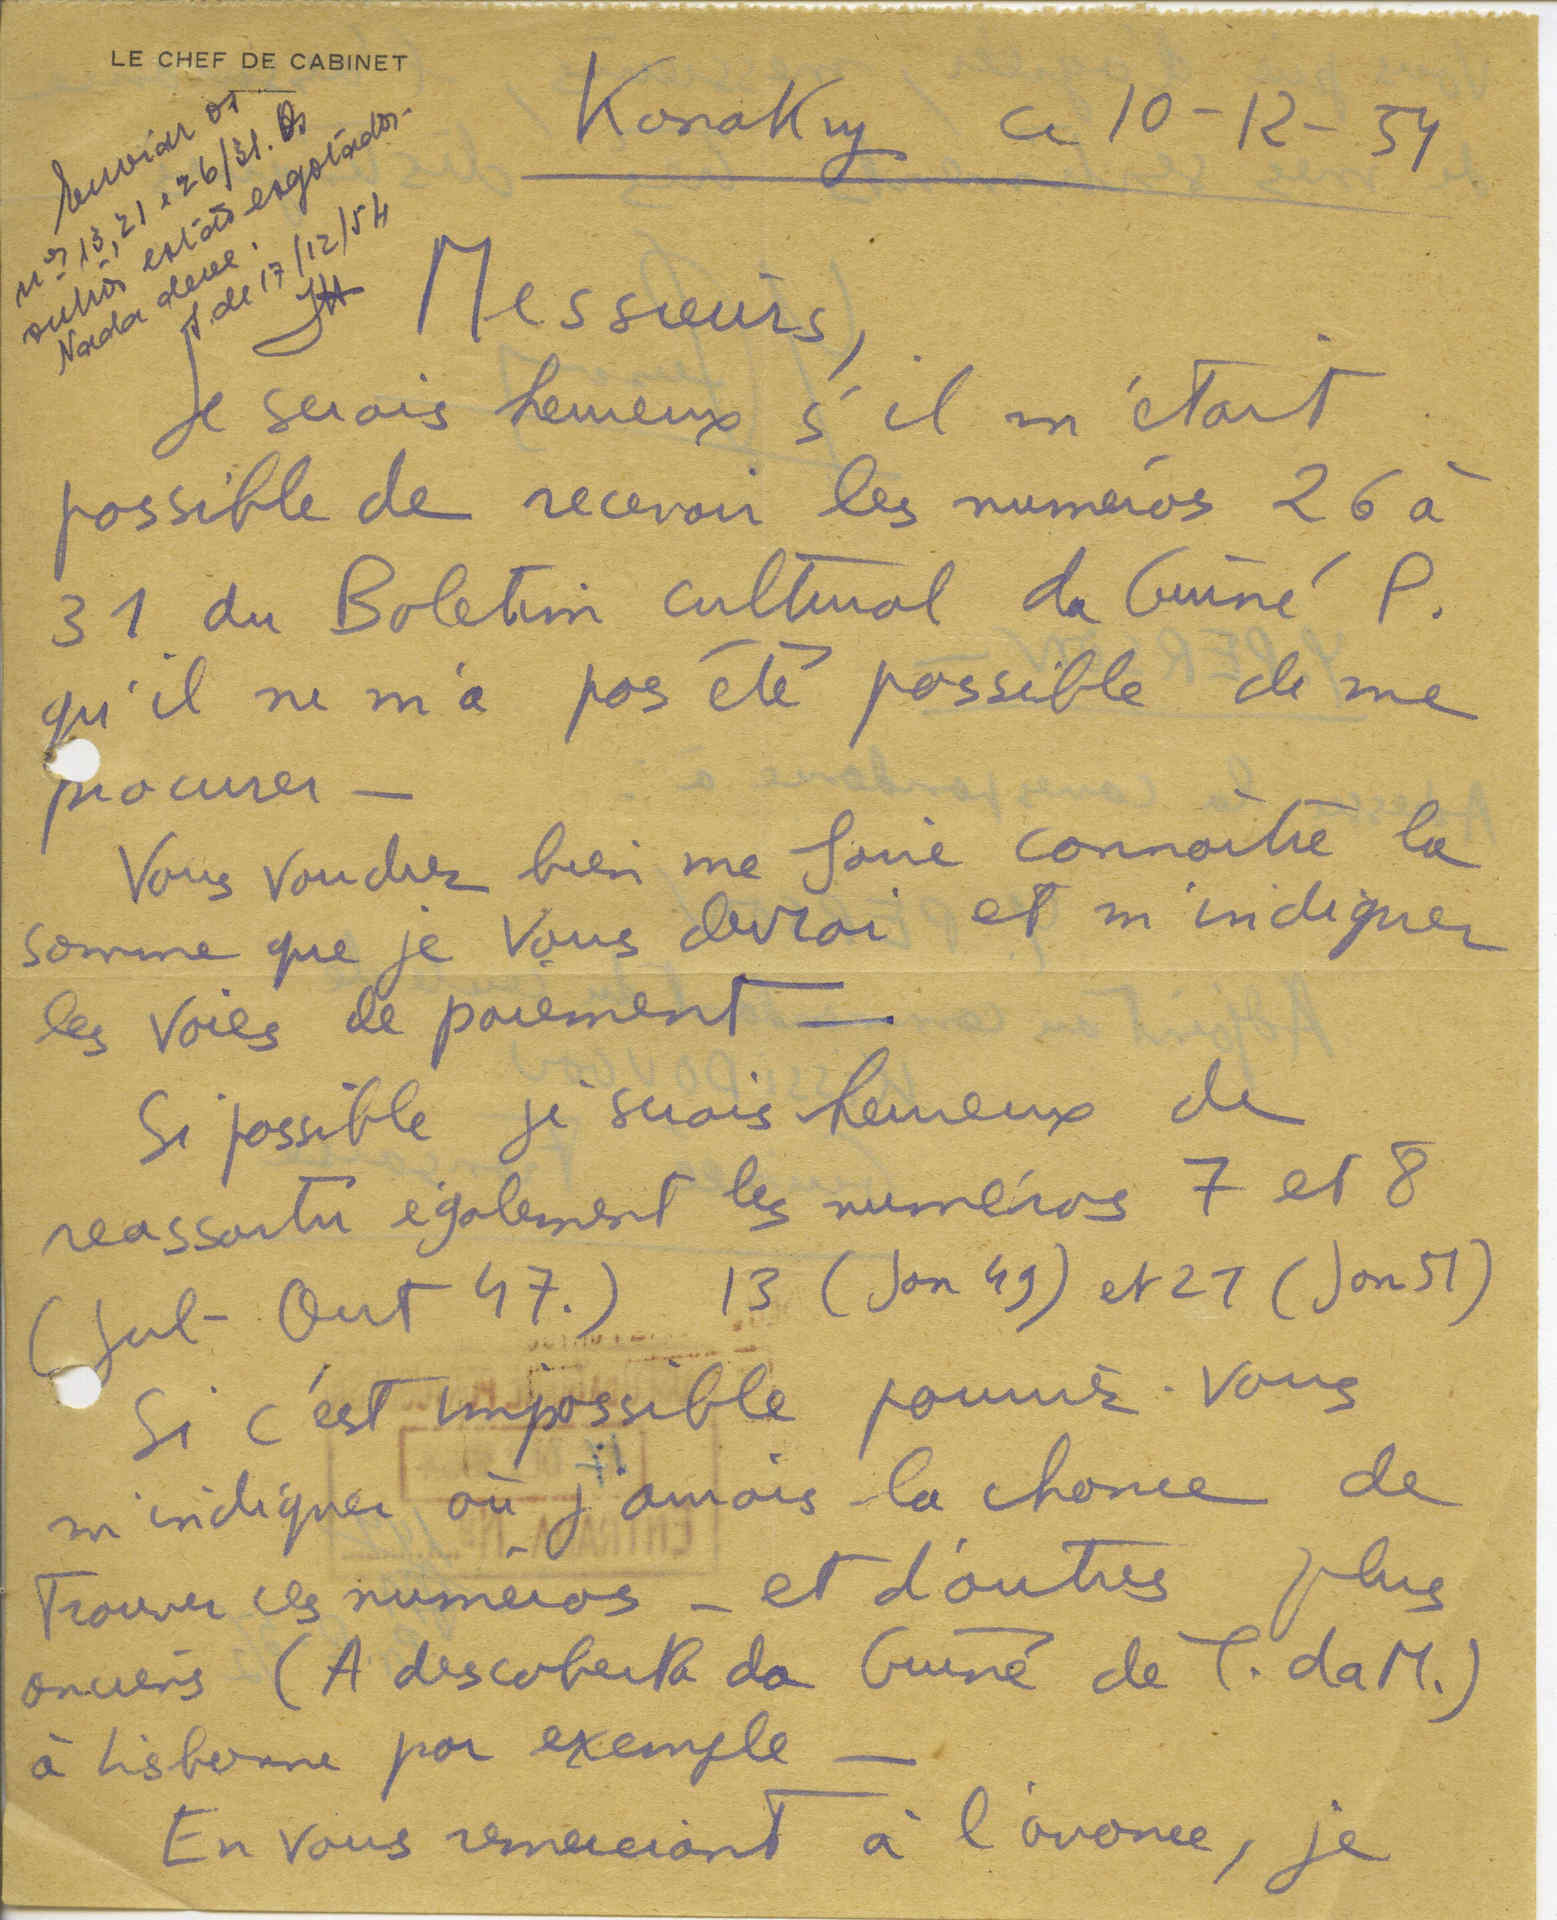 LE CHEF DE CABINET
Konakry ce 10-12-54
Enviar os
nos 13, 21 e 26/31. Os
outros estão esgotados.
Nada deve.
17/12/54
Messieurs,
Je serais heureux s'il m'était
possible de recevoir les numéros 26 à
31 du Boletim cultural da Guiné P.
qu'il ne m'a pas été possible de me
procurer —
Vous voudrez bien me faire connaître la
somme que je vous devrai et m'indiquer
les voies de paiement —
Si possible je serais heureux de
reassortir également les numéros 7 et 8
(Jul - Out 47.) 13 (Jan 49) et 21 (Jan 51)
Si c'est impossible pourriez-vous
m'indiquer où j'aurais la chance de
trouver ces numéros - et d'autres plus
anciens (A descoberta da Guiné de T. da M.)
à Lisbonne par exemple —
En vous remerciant à l'avance, je